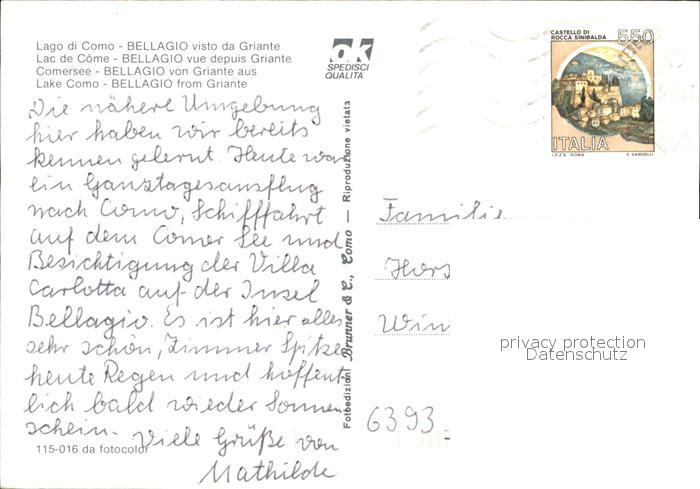 Lago di Como - BELLAGIO visto da Griante
Lac de Côme - BELLAGIO vue depuis Griante
Comersee - BELLAGIO von Griante aus
Lake Como - BELLAGIO from Griante
Die nähere Umgebung
hier haben wir bereits
kennen gelernt. Heute war
ein Ganztagesausflug
nach Como, Schifffahrt
auf dem Comer See und
Besichtigung der Villa
Carlotta auf der Insel
Bellagio. Es ist hier alles
sehr schön, Zimmer Spitze
heute Regen und hoffent-
lich bald wieder Sonnen
schein.
Viele Grüße von
Mathilde
115-016 da fotocolor
ok
SPEDISCI
QUALITA
Fotoedizioni Brunner & C., Como — Riproduzione vietata
CASTELLO DI
ROCCA SINIBALDA
550
ITALIA
I.P.Z.S. - ROMA E. VANGELLI
Familie
Hors
Win
6393
privacy protection
Datenschutz